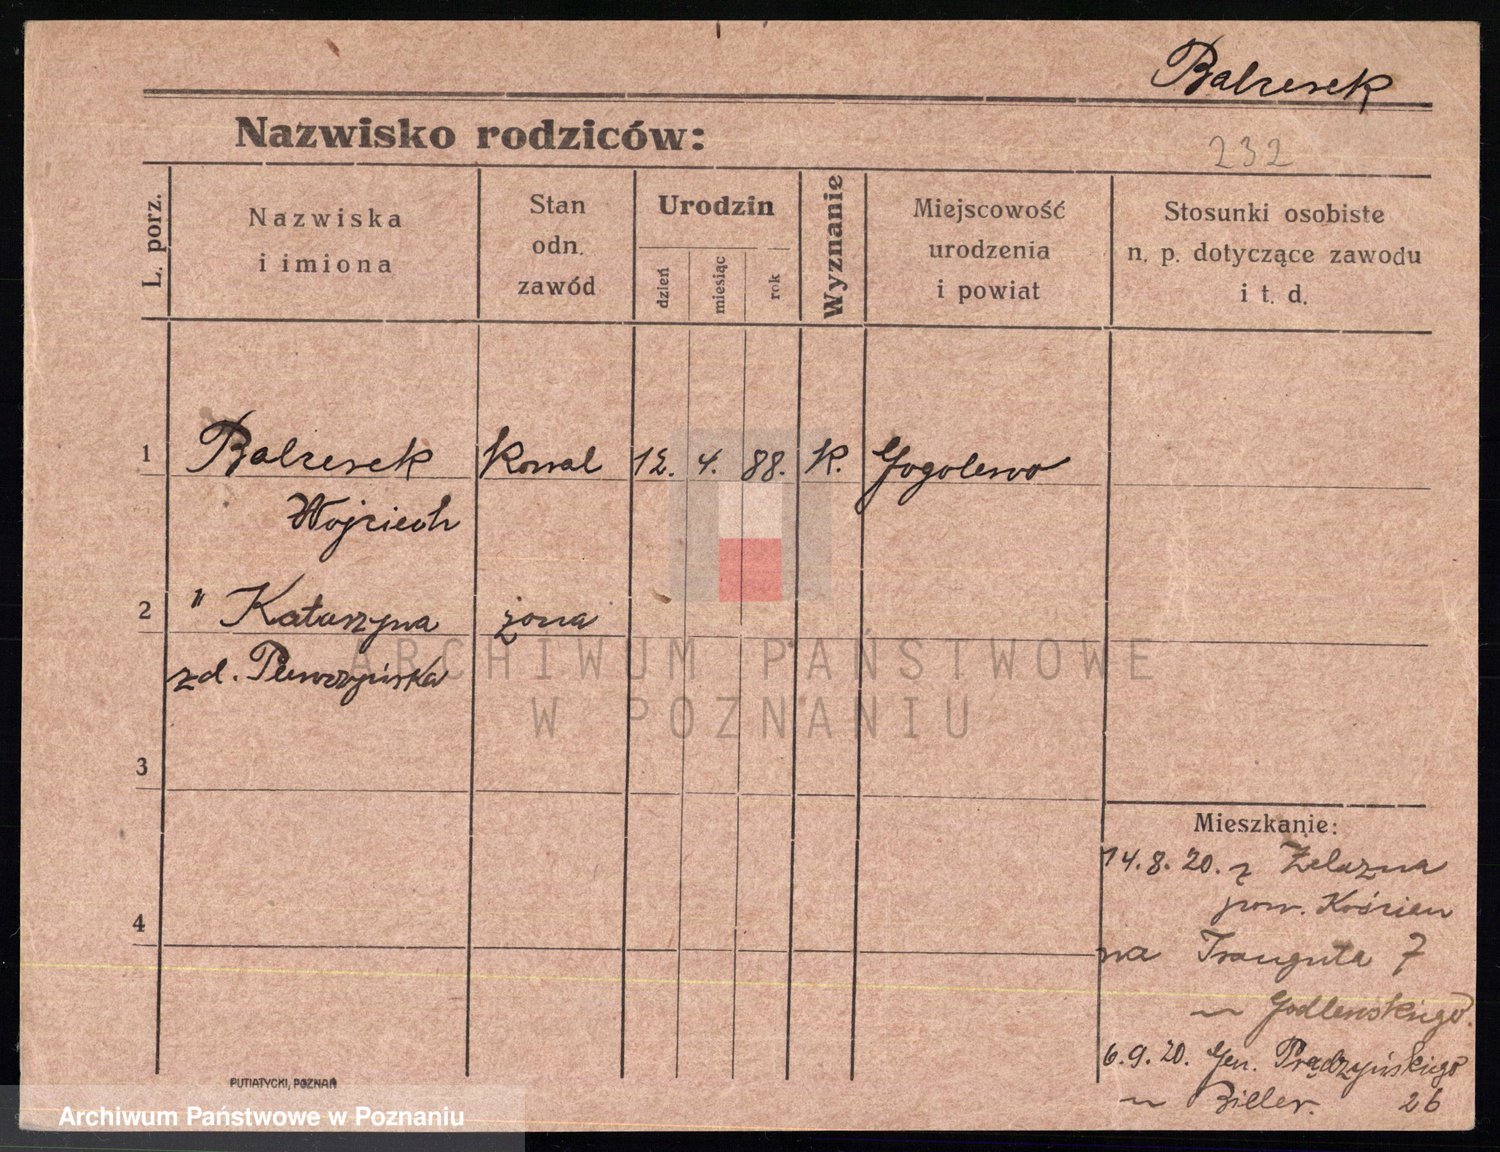 Balcerek
Nazwisko rodziców:
232
L. porz.
Nazwiska
i imiona
Stan
odn.
zawód
Urodzin
dzień
miesiąc
rok
Wyznanie
Miejscowość
urodzenia
i powiat
Stosunki osobiste
n. p. dotyczące zawodu
i t. d.
1 Balcerek Kowal 12. 4. 88. K. Gogolewo
Wojciech
2 " Katarzyna żona
zd.
3
Mieszkanie:
14.8.20. z Żelazna
pow. Kościan
4
na Trauguta 7
u Godlewskiego.
6.9.20. Gen. Prądzyńskiego
u Biller. 26
PUTIATYCKI, POZNAŃ
ARCHIWUM PAŃSTWOWE
W POZNANIU
Archiwum Państwowe w Poznaniu